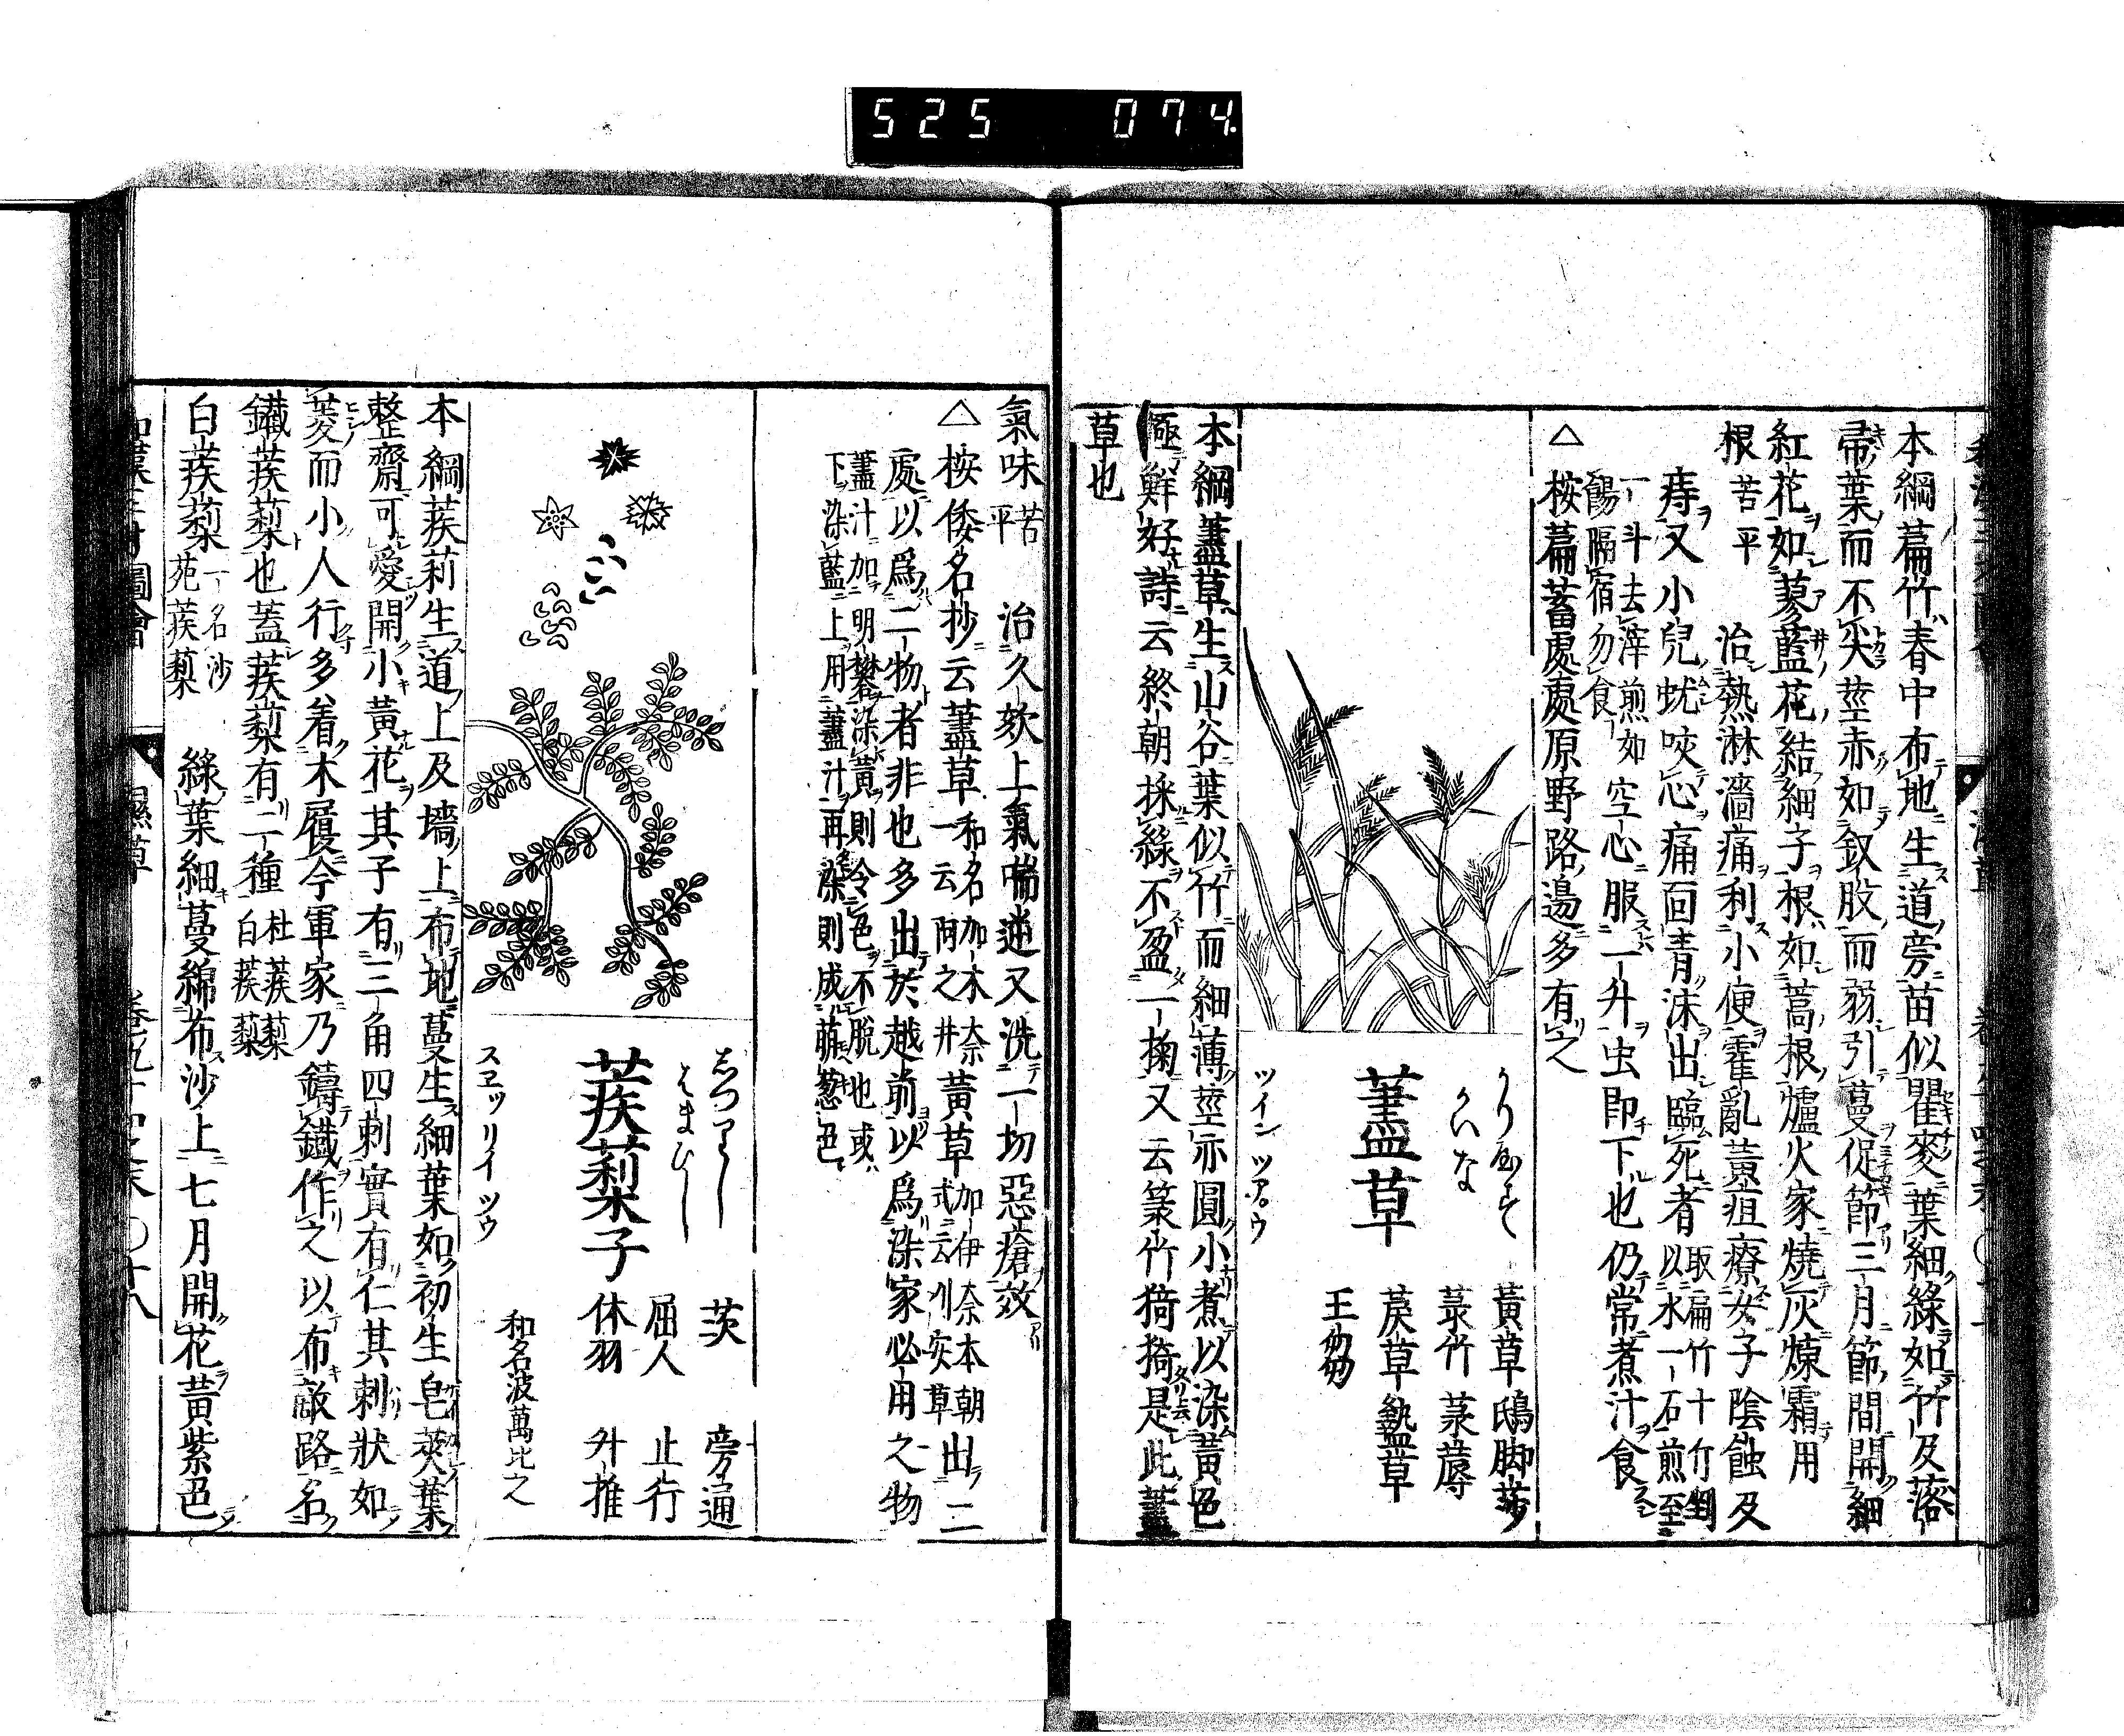 525 074
本綱萹竹春中布地生道旁苗似瞿麥葉細綠如竹及落
帚葉而不尖莖赤如釵股而弱引蔓促節三月節間開細
紅花如蓼藍花結細子根如蒿根爐火家燒灰煉霜用
根 苦平 治熱淋濇痛利小便霍亂黃疸療女子陰蝕及
痔又小兒蚘咬心痛面青沫出臨死者 取扁竹十斤剉以水一石煎至
一斗去滓煎如餳隔宿勿食 空心服一升虫即下也仍常煮汁食
△按萹蓄處處原野路邊多有之
藎草
かりやす
かいな
ツイン ツアウ
黃草 鴟脚莎
菉竹 菉蓐
莀草 盭草
王芻
本綱藎草生山谷葉似竹而細薄莖亦圓小煮以染黃色
極鮮好詩云終朝採綠不盈一掬又云菉竹猗猗是此藎
草也
氣味 苦平 治久欬上氣喘逆又洗一切惡瘡效
△按倭名抄云藎草 和名加木奈 一云阿之井 黃草 加伊奈本朝式云刈安草 出二
處以爲二物者非也多出於越前以爲染家必用之物
藎汁加明礬染黃則令色不脫也或
下染藍上用藎汁再染則成萌葱色
蒺蔾子
しつりし
はまひし
スヱッリイ ツウ
茨 旁通
屈人 止行
休羽 升推
和名波萬比之
本綱蒺莉生道上及墻上布地蔓生細葉如初生皂莢葉
整齊可愛開小黃花其子有三角四刺實有仁其刺狀如
菱而小人行多着木履今軍家乃鑄鐵作之以布敵路名
鐵蒺蔾也蓋蒺蔾有二種 杜蒺蔾 白蒺蔾
白蒺蔾 一名沙苑蒺蔾 綠葉細蔓綿布沙上七月開花黃紫色